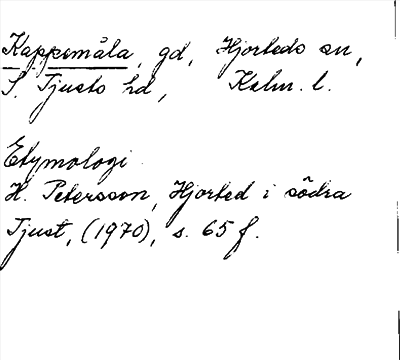 Kappemåla, gd, Hjorteds sn,
S. Tjusts hd, Kalm. l.
Etymologi
H. Petersson, Hjorted i södra
Tjust, (1970), s. 65 f.